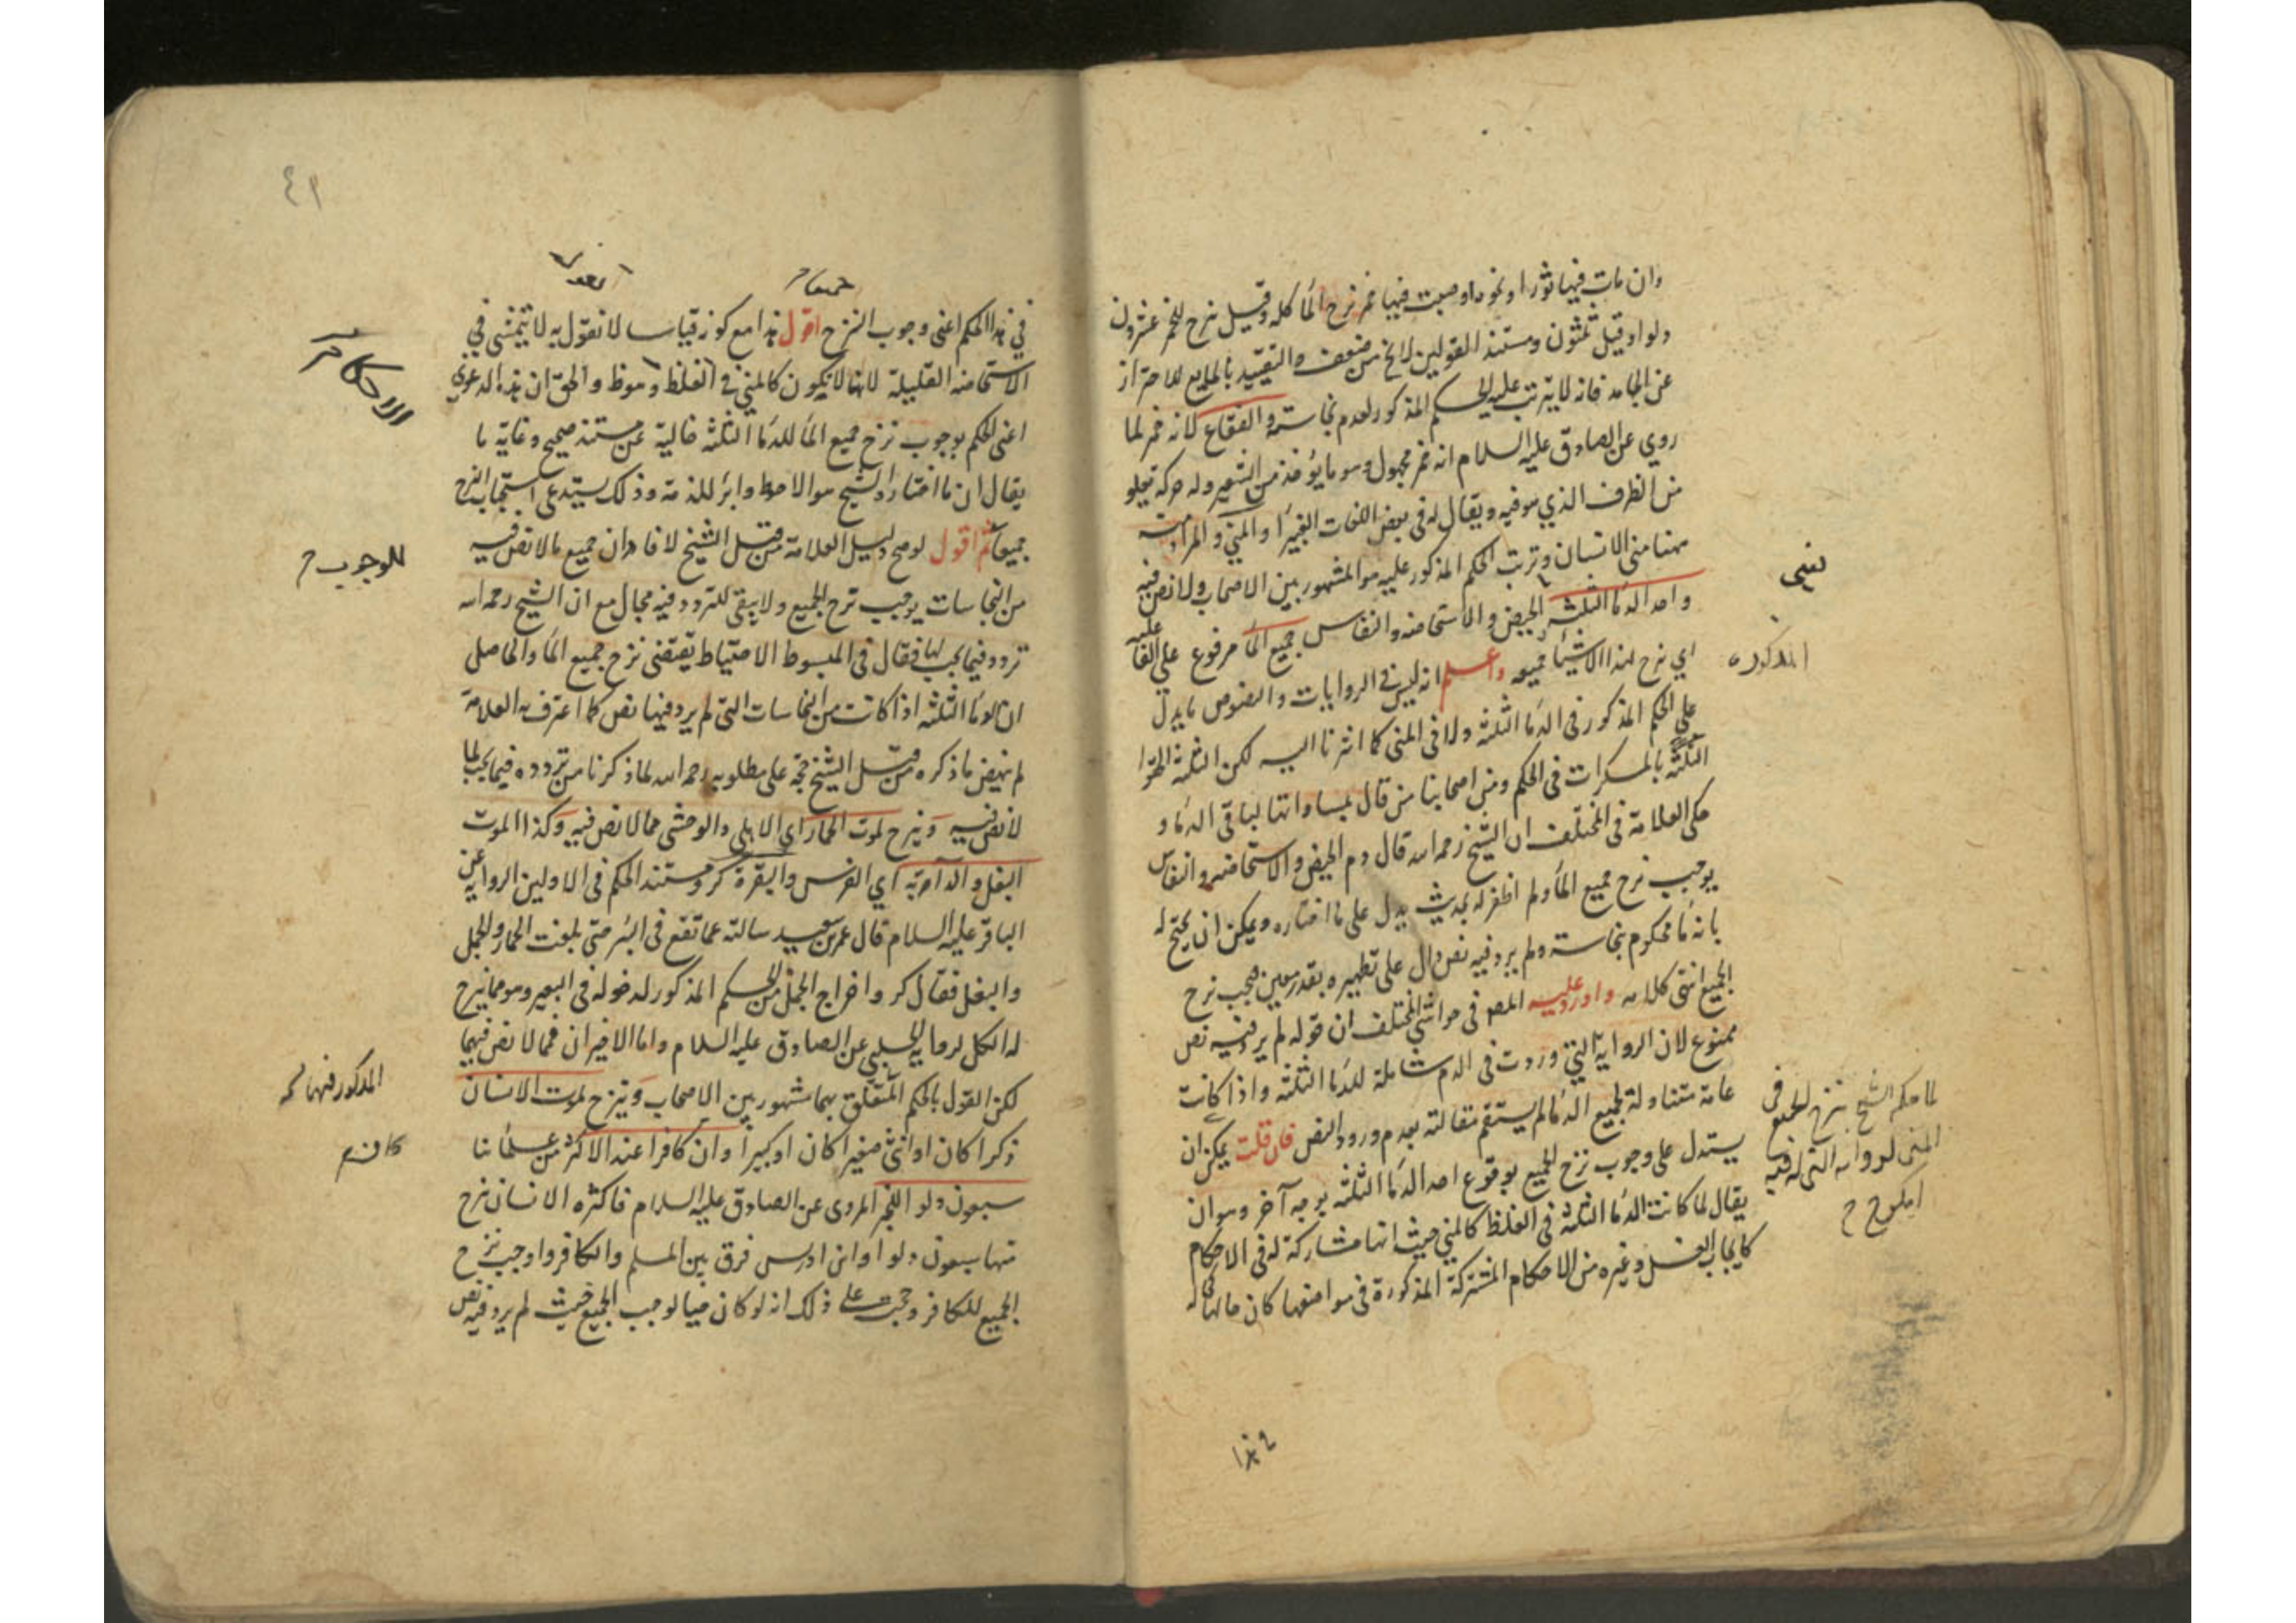 وان مات فيها ثور او نحوه او صبت فيها خمر نزح الماء كله وقيل ينزح للخمر عشرون
دلوا وقيل ثلثون ومستند القولين لا يخ من ضعف والتقييد بالمايع للاحتراز
عن الجامد فانه لا يترتب عليه الحكم المذكور لعدم نجاسته والفقاع لانه خمر لما
روي عن الصادق عليه السلام انه خمر مجهول وهو ما يؤخذ من الشعير وله حركة تعلو
من الظرف الذي هو فيه ويقال له في بعض اللغات الغبيراء والمني والمراد به
ههنا مني الانسان وترتب الحكم المذكور عليه هو المشهور بين الاصحاب ولا نص فيه
واحد الدماء الثلثة الحيض والاستحاضه والنفاس جميع الماء مرفوع على الفا
عليه
اي نزح لهذا الاشياء جميعه واعلم انه ليس في الروايات والنصوص ما يدل
على الحكم المذكور في الدماء الثلثة ولا في المني كما اشرنا اليه لكن الثلثة الحقوا
الثلثة بالمسكرات في الحكم ومن اصحابنا من قال بمساواتها لباقي الدماء و
حكى العلامة في المختلف ان الشيخ رحمه الله قال دم الحيض والاستحاضه والنفاس
يوجب نزح جميع الماء ولم اظفر له بحديث يدل على ما اختاره ويمكن ان يحتج له
بانه ماء محكوم بنجاسته ولم يرد فيه نص دال على تطهيره بقدر معين فيجب نزح
الجميع انتهى كلامه واورد عليه المص في حواشي المختلف ان قوله لم يرد فيه نص
ممنوع لان الرواية التي وردت في الدم شاملة للدماء الثلثة واذا كانت
عامة متناولة لجميع الدماء لم يستقم مقالته بعدم ورود النص فان قلت يمكن ان
يستدل على وجوب نزح الجميع بوقوع احد الدماء الثلثة بوجه آخر وهو ان
يقال لما كانت الدماء الثلثة في الغلظ كالمني حيث انها مشاركة له في الاحكام
كايجاب الغسل وغيره من الاحكام المشتركة المذكورة في مواضعها كان حالها كحاله
المذكورة
لما حكم الشيخ بنزح الجميع في
٤١
في هذا الحكم اعني وجوب النزح اقول هذا مع كونه قياسا لا نقول به لا يتمشى في
الاستحاضه القليلة لانها لا يكون كالمني في الغلظ وهو ظ والحق ان هذه الدعوى
اعني الحكم بوجوب نزح جميع الماء للدماء الثلثة خالية عن مستند صحيح وغاية ما
يقال ان ما اختاره الشيخ هو الاحوط وابرأ للذمة وذلك يستدعي استحباب النزح
جميعا ثم اقول لو صح دليل العلامة من قبل الشيخ لافاد ان جميع ما لا نص فيه
من النجاسات يوجب نزح الجميع ولا يبقى للتردد فيه مجال مع ان الشيخ رحمه الله
تردد فيما يجب لها فقال في المبسوط الاحتياط يقتضي نزح جميع الماء والحاصل
ان الدماء الثلثة اذا كانت من النجاسات التي لم يرد فيها نص كما اعترف به العلامة
لم ينهض ما ذكره من قبل الشيخ حجة على مطلوبه رحمه الله لما ذكرنا من تردده فيما يجب لما
لا نص فيه وينزح لموت الحمار اي الاهلي والوحشي مما لا نص فيه وكذا الموت
البغل والدابة اي الفرس والبقرة كر ومستند الحكم في الاولين الرواية عن
الباقر عليه السلام قال عمر بن سعيد سالته عما تقع في البئر حتى بلغت الحمار والجمل
والبغل فقال كر واخراج الجمل من الحكم المذكور لدخوله في البعير وهو مما ينزح
له الكل لرواية الحلبي عن الصادق عليه السلام واما الاخيران فمما لا نص فيهما
لكن القول بالحكم المتعلق بهما مشهور بين الاصحاب وينزح لموت الانسان
ذكرا كان او انثى صغيرا كان او كبيرا وان كافرا عند الاكثر من علمائنا
سبعون دلوا للخبر المروي عن الصادق عليه السلام فاكثره الانسان ينزح
منها سبعون دلوا وابن ادريس فرق بين المسلم والكافر واوجب نزح
الجميع للكافر وحجته على ذلك انه لو كان حيا لوجب الجميع حيث لم يرد فيه نص
للوجوب
المذكور فيهما
كان